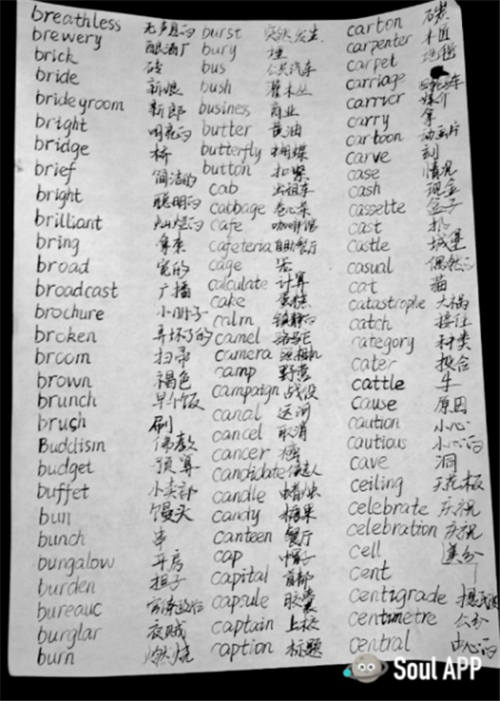 breathless 无声息的
brewery 酿酒厂
brick 砖
bride 新娘
brideyroom 新郎
bright 明亮的
bridge 桥
brief 简洁的
bright 聪明的
brilliant 灿烂的
bring 拿来
broad 宽的
broadcast 广播
brochure 小册子
broken 弄坏了的
broom 扫帚
brown 褐色
brunch 早午饭
brush 刷
Buddism 佛教
budget 预算
buffet 小卖部
bun 馒头
bunch 串
bungalow 平房
burden 担子
bureauc
burglar 夜贼
burn 燃烧
burst 突然发生
bury 埋
bus 公共汽车
bush 灌木丛
business 商业
butter 黄油
butterfly 蝴蝶
button 扣紧
cab 出租车
cabbage 卷心菜
cafe 咖啡馆
cafeteria 自助餐厅
cage 笼
calculate 计算
cake 蛋糕
calm 镇静的
camel 骆驼
camera 照相机
camp 野营
campaign 战役
canal 运河
cancel 取消
cancer 癌
candidate 候选人
candle 蜡烛
candy 糖果
canteen 餐厅
cap 帽子
capital 首都
capsule 胶囊
captain 上校
caption 标题
carton
carpenter 木匠
carpet 地毯
carriage
carrier 媒介
carry 拿
cartoon 动画片
carve 刻
case 情况
cash 现金
cassette 盒子
cast 扔
castle 城堡
casual 偶然的
cat 猫
catastrophe 大祸
catch 接住
category 种类
cater 投合
cattle 牛
cause 原因
caution 小心
cautious 小心的
cave 洞
ceiling 天花板
celebrate 庆祝
celebration 庆祝
cell
cent 美分
centigrade
centimetre 公分
central 中心的
Soul APP